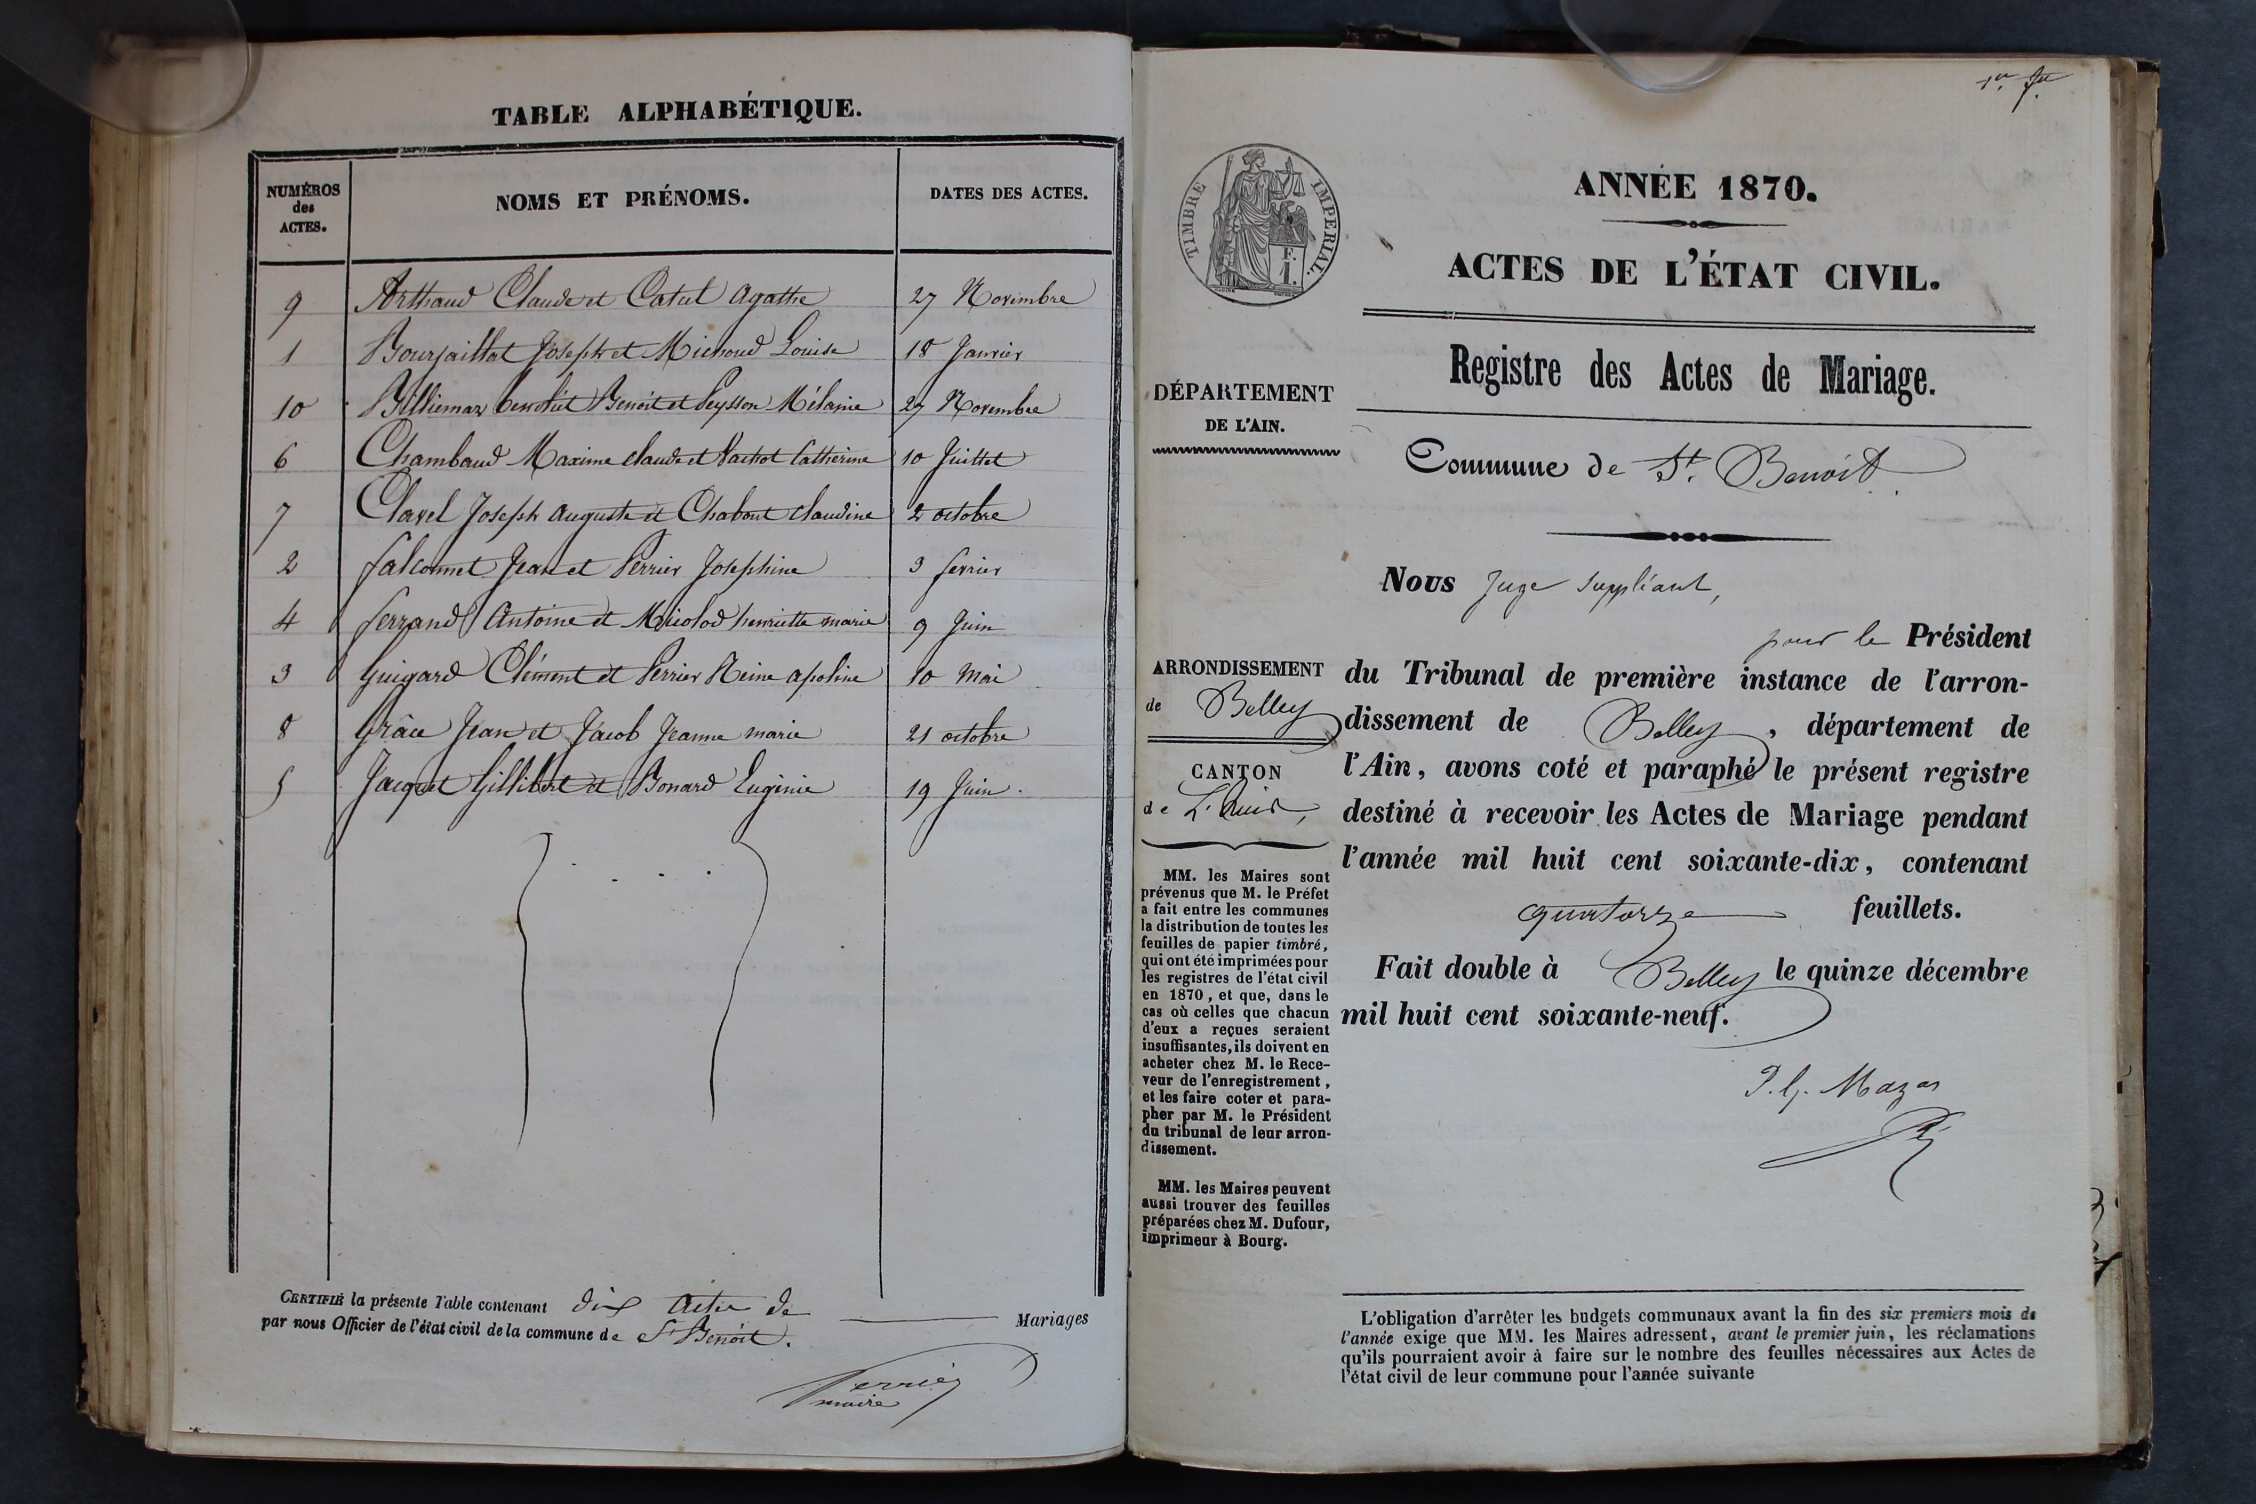 TABLE ALPHABÉTIQUE.
NUMÉROS
des
ACTES.
NOMS ET PRÉNOMS.
DATES DES ACTES.
9 Arthaud Claude et Catul agathe 27 Novembre
1 Bourjaillat Joseph et Michoud Louise 18 Janvier
10 Billiemaz Benoît et Peysson Mélanie 27 Novembre
6 Chambaud Maxime claude et Vachot Catherine 10 Juillet
7 Clavel Joseph auguste et Chabout claudine 2 octobre
2 falconnet Jean et Perrier Josephine 3 fevrier
4 ferrand Antoine et Micolod henriette marie 9 Juin
3 Guigard Clément et Perrier Reine apoline 10 Mai
8 Grâce Jean et Jacob Jeanne marie 21 octobre
5 Jacquet Gillibert et Bonard Eugénie 19 Juin.
CERTIFIÉ la présente Table contenant dix actes de Mariages
par nous Officier de l'état civil de la commune de St Benoit.
Perrier
maire
1er f.et
TIMBRE IMPERIAL.
F.
1.
ANNÉE 1870.
ACTES DE L'ÉTAT CIVIL.
Registre des Actes de Mariage.
Commune de St. Benoit.
DÉPARTEMENT
DE L'AIN.
ARRONDISSEMENT
de Belley
CANTON
de L'huis,
MM. les Maires sont
prévenus que M. le Préfet
a fait entre les communes
la distribution de toutes les
feuilles de papier timbré,
qui ont été imprimées pour
les registres de l'état civil
en 1870, et que, dans le
cas où celles que chacun
d'eux a reçues seraient
insuffisantes, ils doivent en
acheter chez M. le Rece-
veur de l'enregistrement,
et les faire coter et para-
pher par M. le Président
du tribunal de leur arron-
dissement.
MM. les Maires peuvent
aussi trouver des feuilles
préparées chez M. Dufour,
imprimeur à Bourg.
Nous Juge suppléant,
pour le Président
du Tribunal de première instance de l'arron-
dissement de Belley, département de
l'Ain, avons coté et paraphé le présent registre
destiné à recevoir les Actes de Mariage pendant
l'année mil huit cent soixante-dix, contenant
quatorze feuillets.
Fait double à Belley le quinze décembre
mil huit cent soixante-neuf.
P. G. Mazas
L'obligation d'arrêter les budgets communaux avant la fin des six premiers mois de
l'année exige que MM. les Maires adressent, avant le premier juin, les réclamations
qu'ils pourraient avoir à faire sur le nombre des feuilles nécessaires aux Actes de
l'état civil de leur commune pour l'année suivante